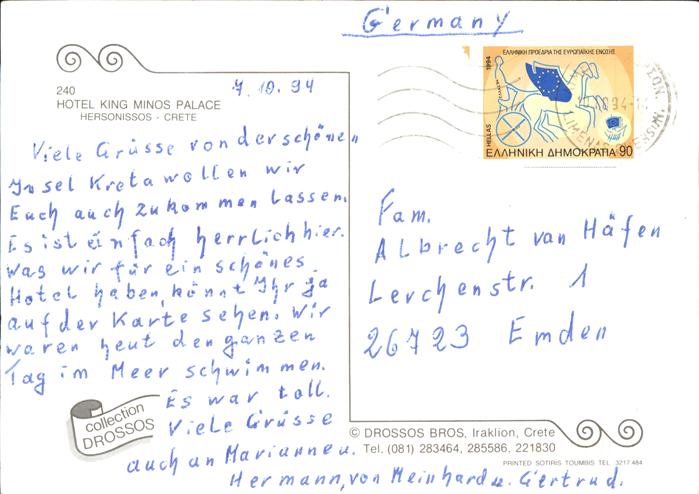 Germany
240
HOTEL KING MINOS PALACE
HERSONISSOS - CRETE
7.10.94
Viele Grüsse von der schönen
Insel Kreta wollen wir
Euch auch zukommen lassen.
Es ist einfach herrlich hier.
was wir für ein schönes
Hotel haben, könnt Ihr ja
auf der Karte sehen. Wir
waren heut den ganzen
Tag im Meer schwimmen.
Es war toll.
Viele Grüsse
auch an Marianne u.
Hermann, von Meinhard u. Gertrud.
ΕΛΛΗΝΙΚΗ ΠΡΟΕΔΡΙΑ ΤΗΣ ΕΥΡΩΠΑΪΚΗΣ ΕΝΩΣΗΣ
1994
HELLAS
ΕΛΛΗΝΙΚΗ ΔΗΜΟΚΡΑΤΙΑ 90
Fam.
Albrecht van Häfen
Lerchenstr. 1
26723 Emden
collection
DROSSOS
© DROSSOS BROS, Iraklion, Crete
Tel. (081) 283464, 285586, 221830
PRINTED SOTIRIS TOUMBIS TEL. 3217 484